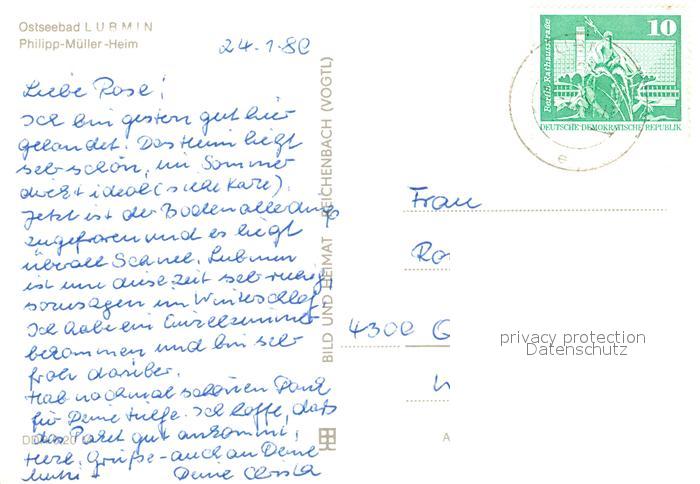 Ostseebad LUBMIN
Philipp-Müller-Heim
24.1.80
Liebe Rose!
Ich bin gestern gut hier
gelandet. Das Heim liegt
sehr schön, im Sommer
direkt ideal (siehe Karte).
Jetzt ist der Boden allerdings
zugefroren und es liegt
überall Schnee. Lubmin
ist um diese Zeit sehr ruhig,
sozusagen im Winterschlaf.
Ich habe ein Einzelzimmer
bekommen und bin sehr
froh darüber.
Hab nochmal schönen Dank
für Deine Hilfe. Ich hoffe, daß
das Paket gut ankommt.
Herzl. Grüße - auch an Deine
Mutti - Deine Christa
BILD UND HEIMAT REICHENBACH (VOGTL)
10
Berlin, Rathausstraße
DEUTSCHE DEMOKRATISCHE REPUBLIK
Frau
Ro
4300 G
privacy protection
Datenschutz
A